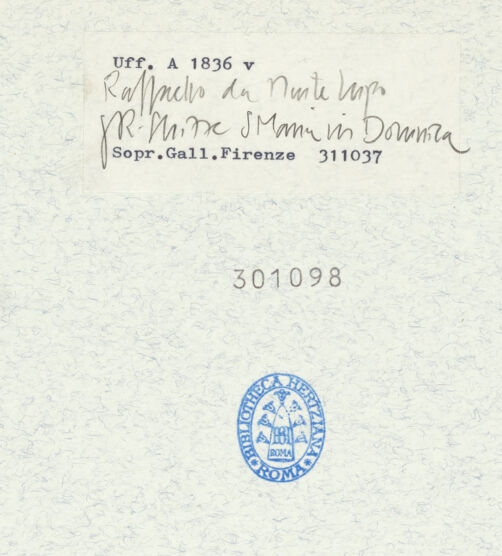 Uff. A 1836 v
Raffaello da Monte Lupo
GR. Skizze S Maria in Domnica
Sopr.Gall.Firenze 311037
301098
BIBLIOTHECA HERTZIANA
ROMA
ROMA